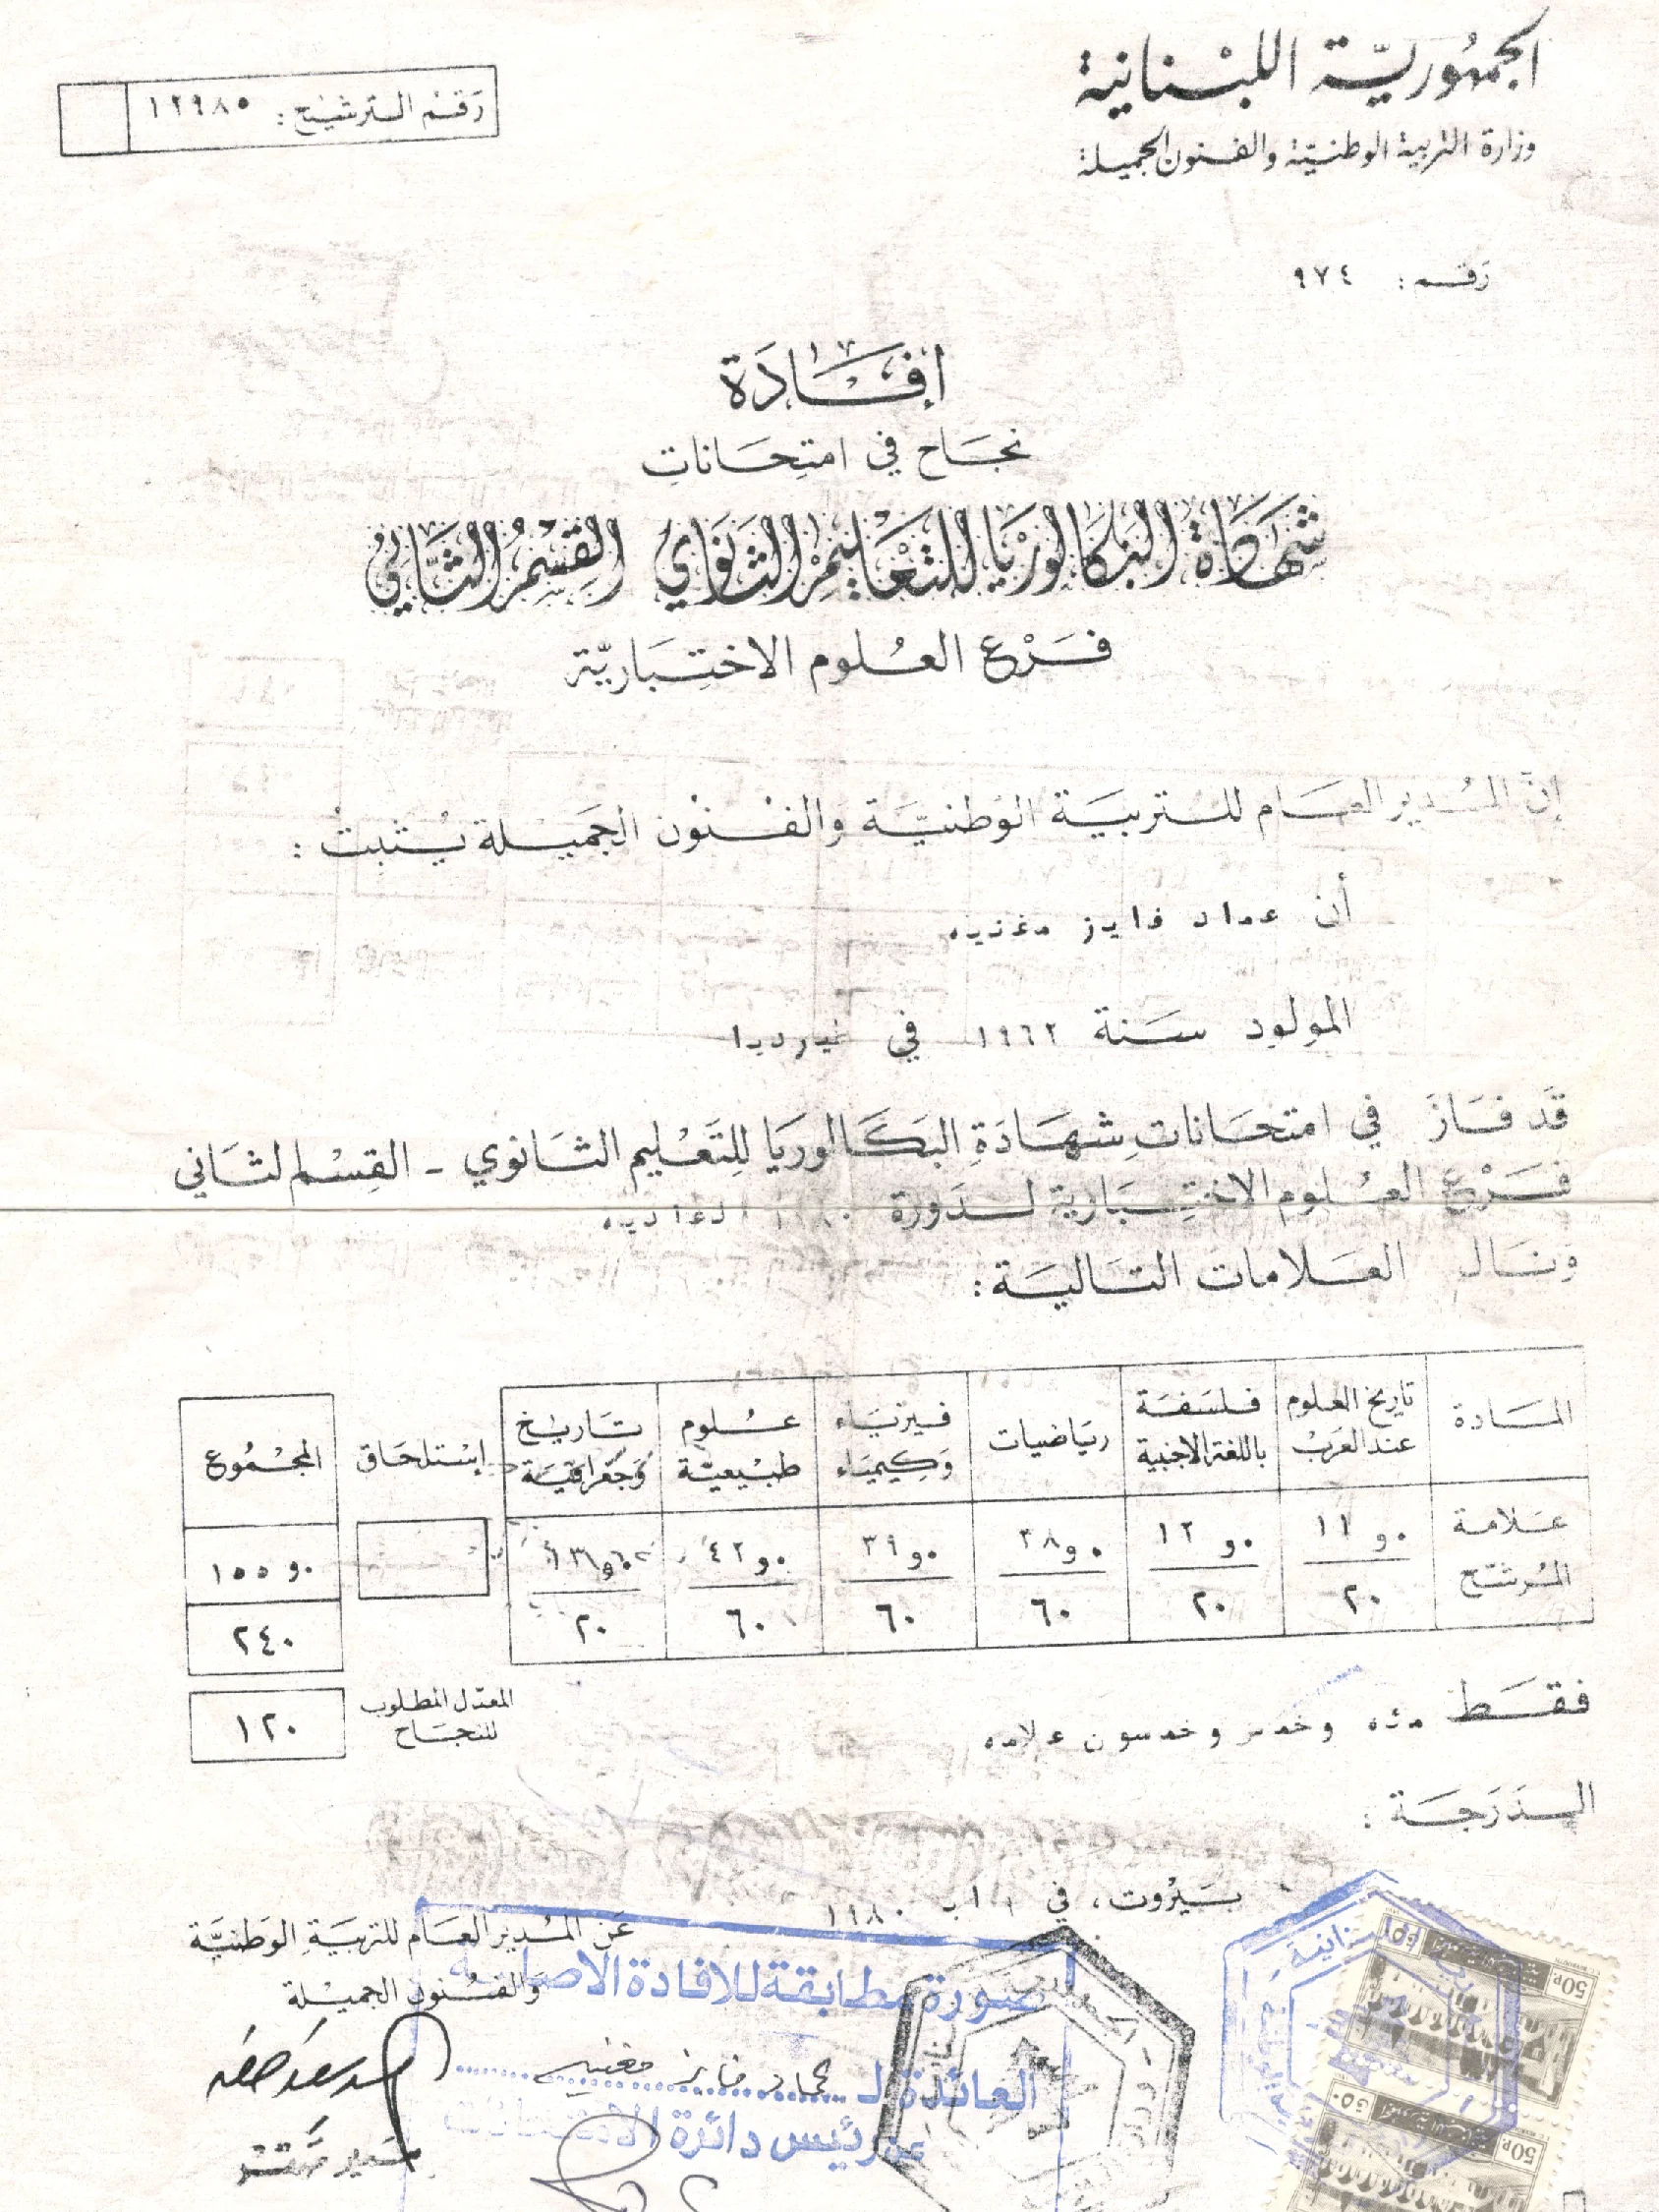 الجمهورية اللبنانية
وزارة التربية الوطنية والفنون الجميلة
رقم الترشيح: ١٢٩٨٥
رقم: ٩٧٤
إفادة
نجاح في امتحانات
شهادة البكالوريا للتعليم الثانوي القسم الثاني
فرع العلوم الاختبارية
إن المدير العام للتربية الوطنية والفنون الجميلة يثبت:
أن عماد فايز مغنيه
المولود سنة ١٩٦٢ في
قد فاز في امتحانات شهادة البكالوريا للتعليم الثانوي - القسم الثاني
فرع العلوم الاختبارية لدورة ١٩٨٠ العاديه
ونال العلامات التالية:
المادة تاريخ العلوم عند العرب فلسفة باللغة الاجنبية رياضيات فيزياء وكيمياء علوم طبيعية تاريخ وجغرافية إستلحاق المجموع
علامة المرشح ١١و٠٠ ١٢و٠٠ ٣٨و٠ ٣٩و٠٠ ٤٢و٠٠ ١٣و٠٠ ١٥٥و٠٠
٢٠ ٢٠ ٦٠ ٦٠ ٦٠ ٢٠ ٢٤٠
المعدل المطلوب للنجاح ١٢٠
فقط مئه وخمس وخمسون علامه
الدرجة:
بيروت، في اب ١٩٨٠
عن المدير العام للتربية الوطنية
والفنون الجميلة
صورة مطابقة للافادة الاصلية
العائدة لـ عماد فايز مغنيه
عن رئيس دائرة الامتحانات
50P
50P